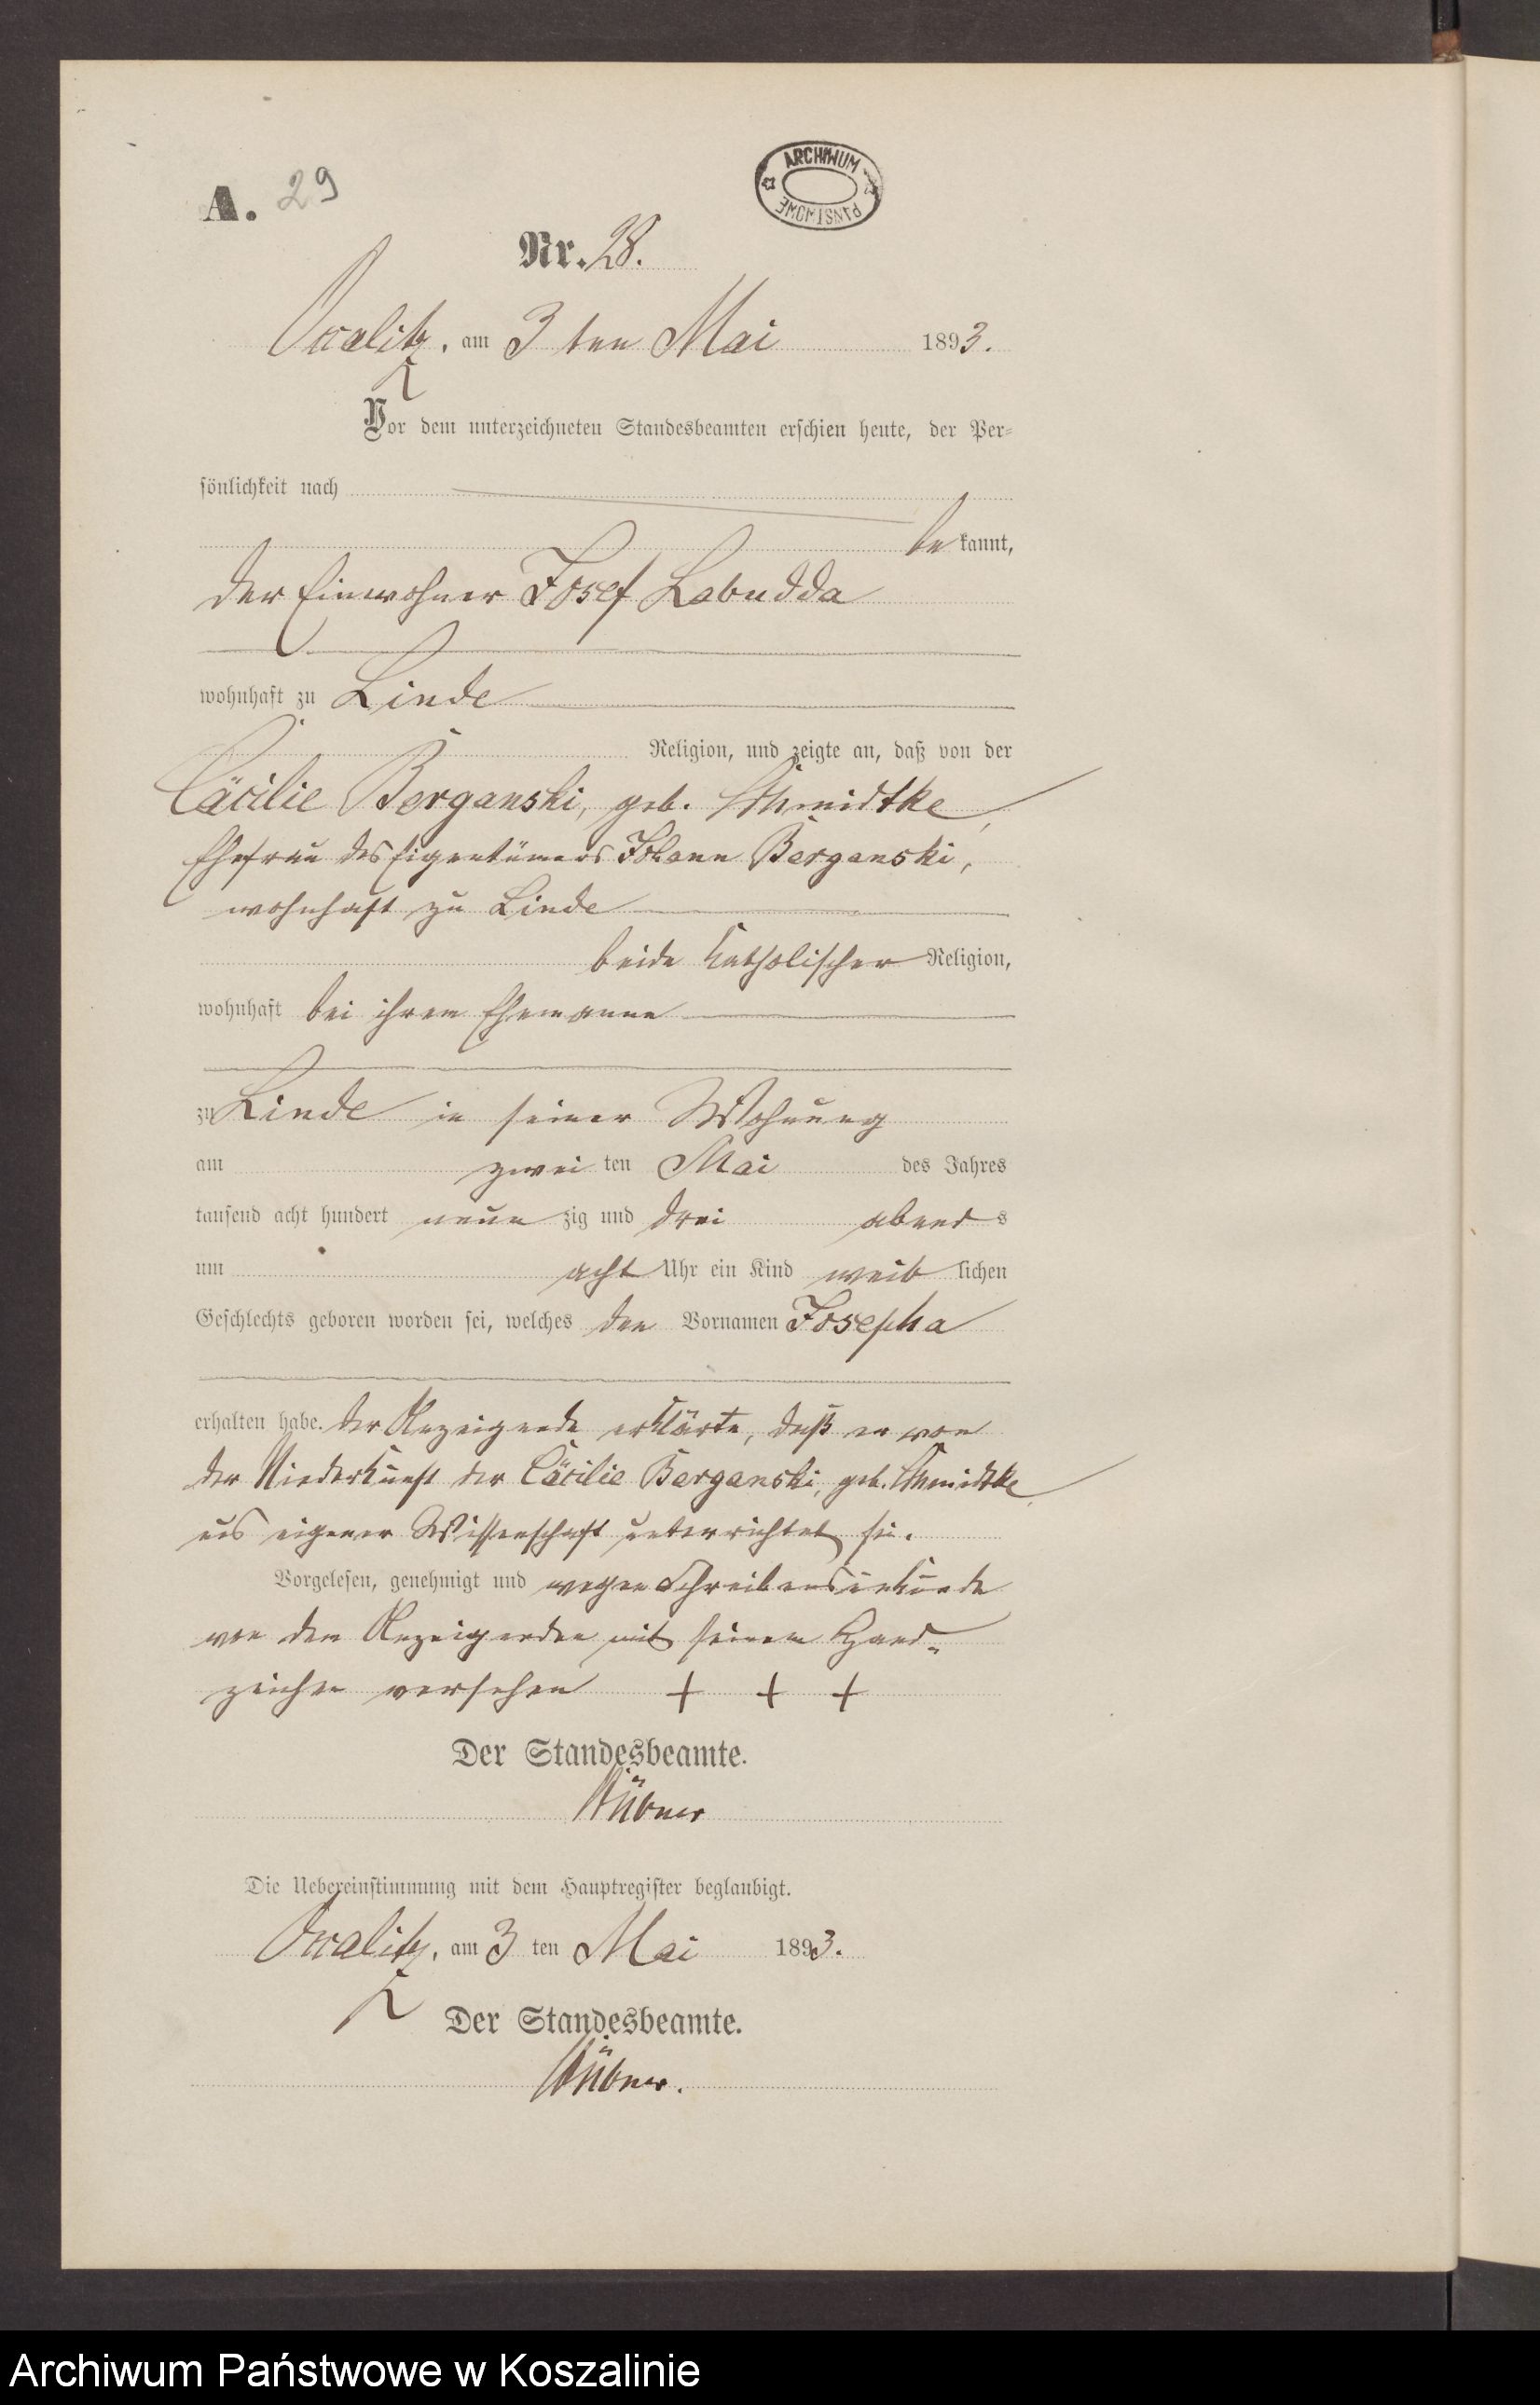 A. 29
ARCHIWUM
PAŃSTWOWE
Nr. 28.
Owalitz, am 3 ten Mai 1893.
Vor dem unterzeichneten Standesbeamten erschien heute, der Per=
sönlichkeit nach
be kannt,
der Einwohner Josef Labudda
wohnhaft zu Linde
Religion, und zeigte an, daß von der
Cäcilie Berganski, geb. Schmidtke,
Ehefrau des Eigentümers Johann Berganski,
wohnhaft zu Linde
beide katholischer Religion,
wohnhaft bei ihrem Ehemanne
zu Linde in seiner Wohnung
am zwei ten Mai des Jahres
tausend acht hundert neun zig und drei abend s
um acht Uhr ein Kind weib lichen
Geschlechts geboren worden sei, welches den Vornamen Josepha
erhalten habe. Der Anzeigende erklärte, daß er von
der Niederkunft der Cäcilie Berganski, geb. Schmidtke,
aus eigener Wissenschaft unterrichtet sei.
Vorgelesen, genehmigt und wegen Schreibensunkunde
von dem Anzeigenden mit seinem Hand-
zeichen versehen + + +
Der Standesbeamte.
Die Uebereinstimmung mit dem Hauptregister beglaubigt.
Owalitz, am 3 ten Mai 1893.
Der Standesbeamte.
Archiwum Państwowe w Koszalinie